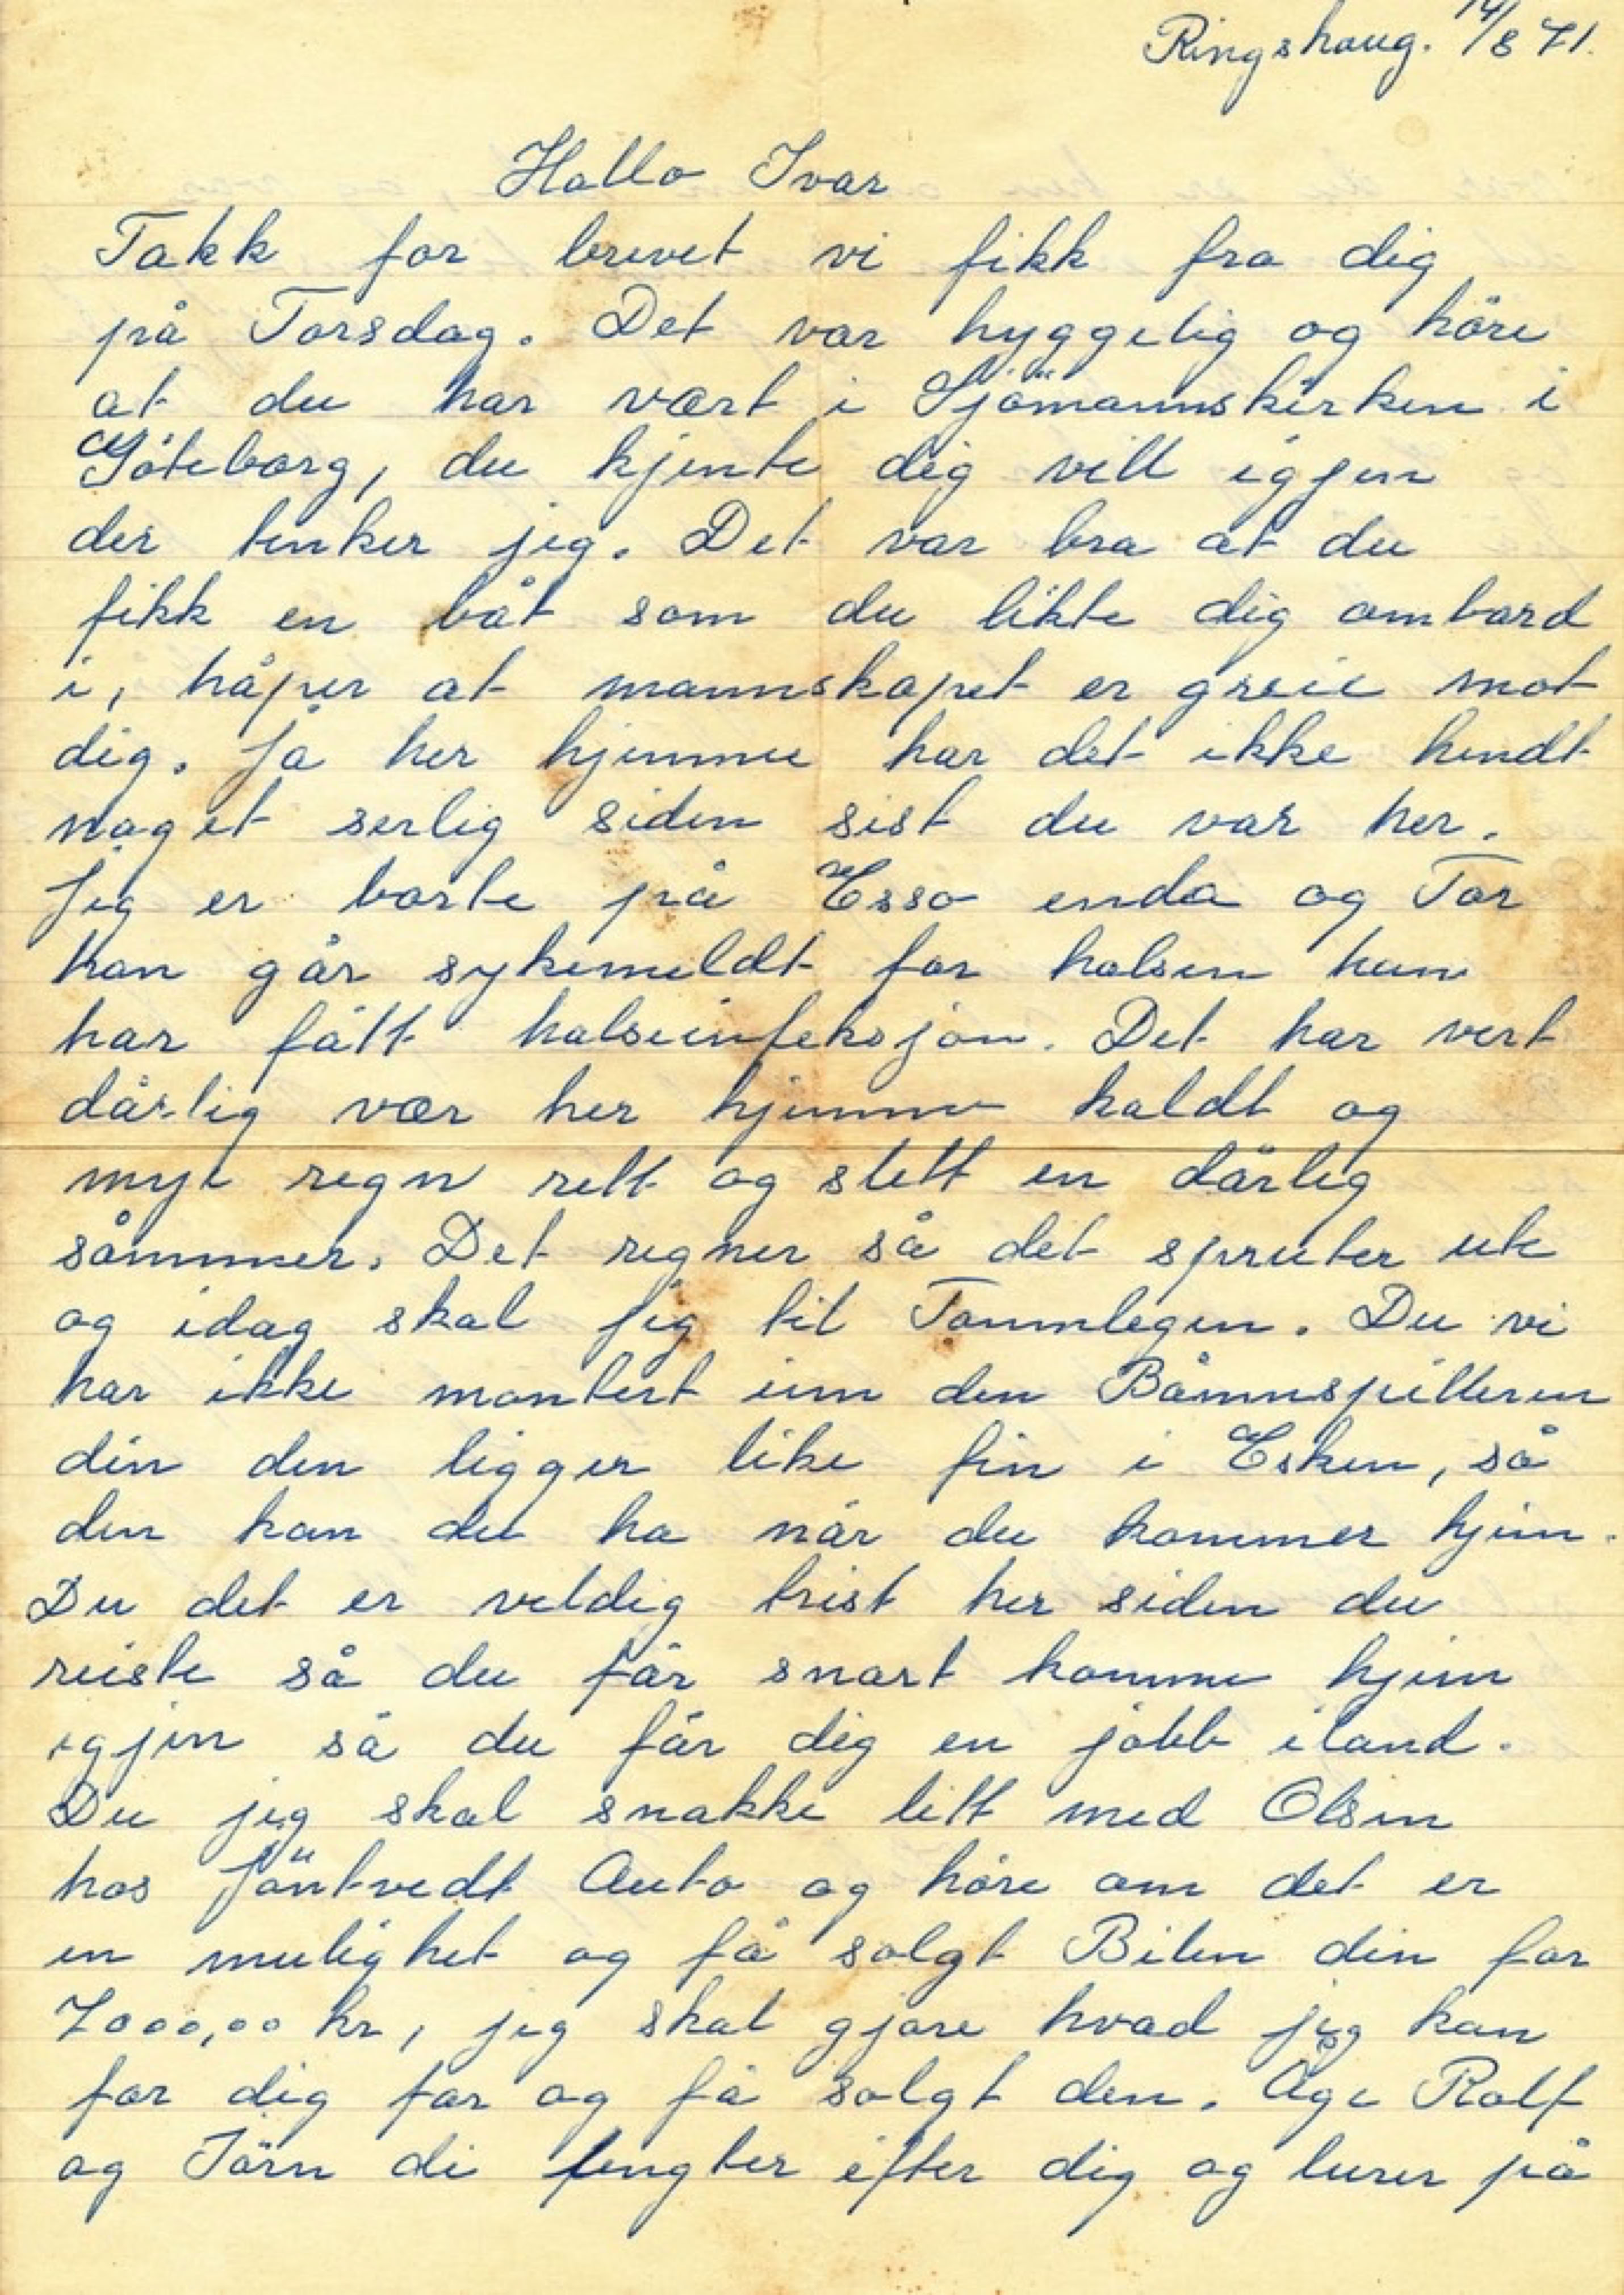 Ringshaug. 14/8 71.
Hallo Ivar
Takk for brevet vi fikk fra dig
på Torsdag. Det var hyggelig og höre
at du har vært i Sjömannskirken i
Göteborg, du kjente dig vell igjen
der tenker jeg. Det var bra at du
fikk en båt som du likte dig ombord
i, håper at mannskapet er greie mot
dig. Ja her hjemme har det ikke hendt
noget serlig siden sist du var her.
Jeg er borte på Esso enda og Tor
han går sykemeldt for halsen hans
har fått halseinfeksjon. Det har vert
dårlig vær her hjemme kaldt og
mye regn rett og slett en dårlig
såmmer. Det regner så det spruter ute
og idag skal jeg til Tannlegen. Du vi
har ikke montert inn den Bånnspilleren
din den ligger like fin i Esken, så
den kan du ha når du kommer hjem.
Du det er veldig trist her siden du
reiste så du får snart komme hjem
igjen så du får dig en jobb iland.
Du jeg skal snakke litt med Olsen
hos Jöntvedt Auto og höre om det er
en mulighet og få solgt Bilen din for
7000,00 kr, jeg skal gjöre hvad jeg kan
for dig for og få solgt den. Åge Rolf
og Jörn di lengter efter dig og lurer på